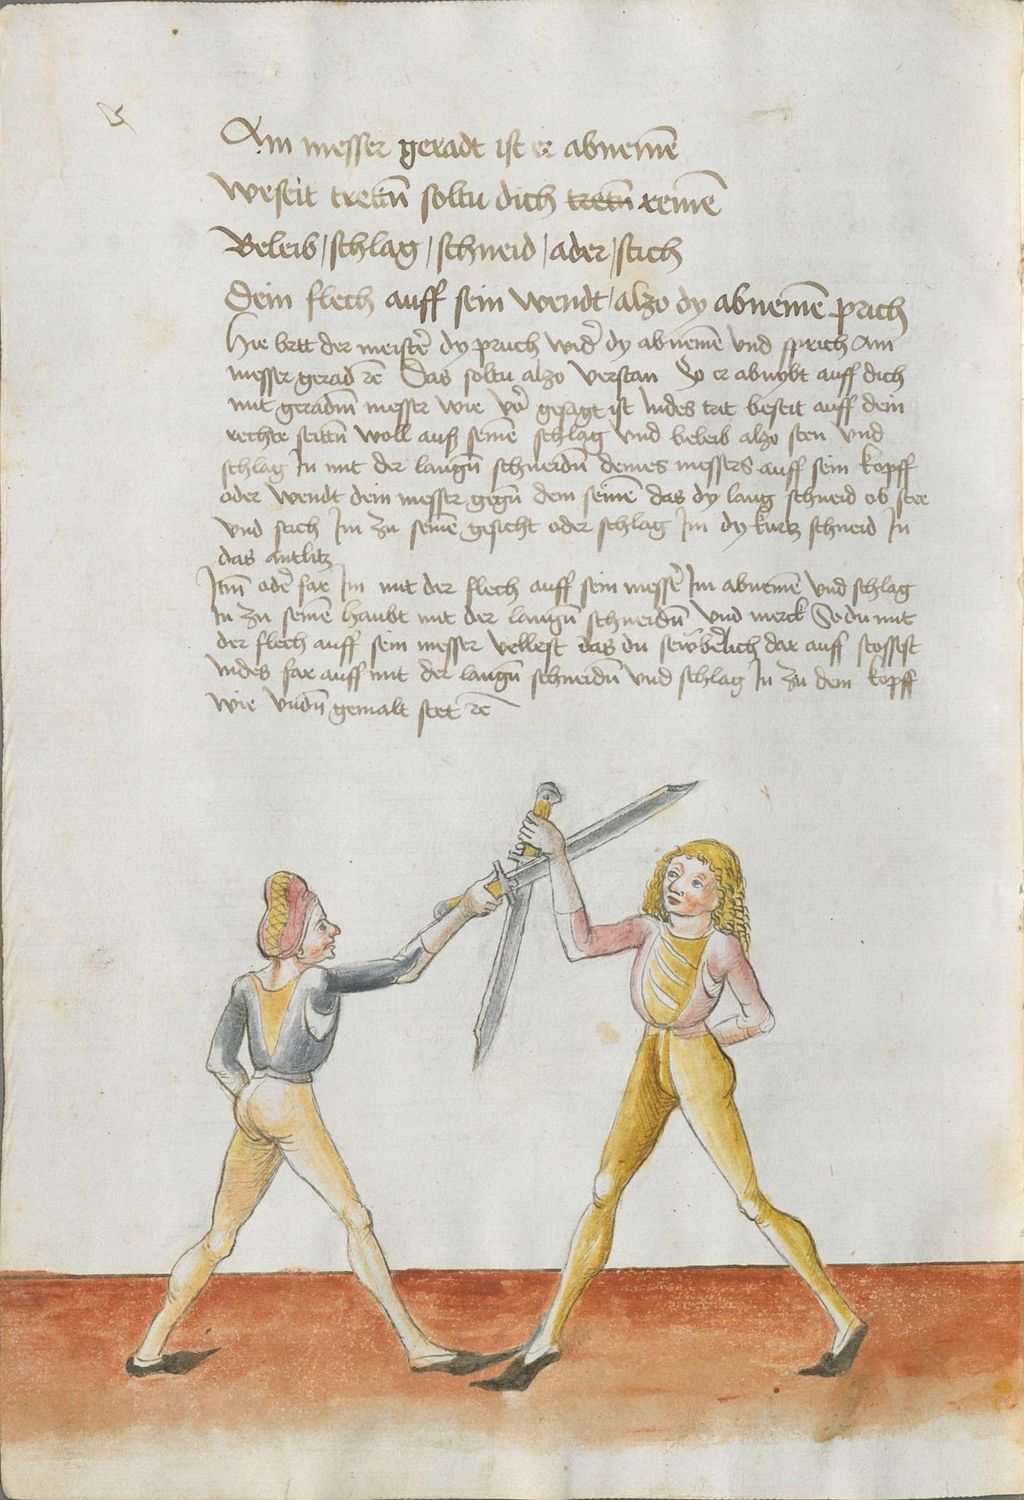 Am messer geradt ist er abnemē
Weseit trettñ soltu dich tretñ remē
Beleib / schlag / schneid / ader / stich
Dein flech auff sein wendt / alzo dy abnemē prich
Hie lert der meistẽ dy pruch wid̃ dy abnemē vnd sprich Am
messer gerad ꝛc Das soltu alzo verstan So er abnÿbt auff dich
mit geradm̄ messer wie vor̃ gesagt ist Indes trit beseit auff dein
rechte seittñ woll auß seinē schlag vnd beleib alzo sten vnd
schlag In mit der langñ schneidñ deines messers auff sein kopff
oder wendt dein messer gegñ dem seinē das dy lang schneid ob stee
vnd stich Im zu seinē gesicht oder schlag Im dy kurtz schneid In
das antlitz
Itm̄ ode᷑ far Im mit der flech auff sein messe᷑ Im abnemē vnd schlag
In zu seinē haubt mit der langñ schneidñ vnd merck So du mit
der flech auff sein messer vellest das du sein dar auff stossest
Indes far auff mit der langñ schneidñ vnd schlag In zu dem kopff
wie vndñ gemalt stet ꝛc